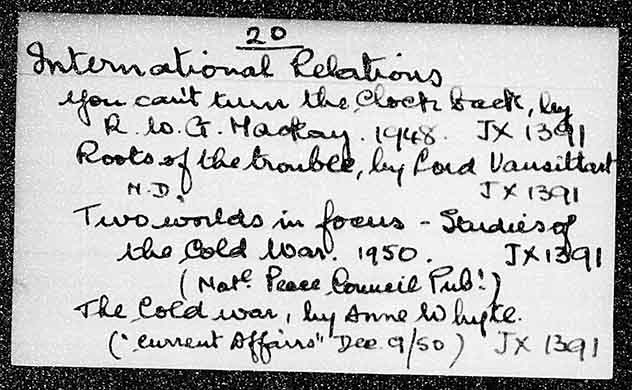 20
International Relations
You can't turn the Clock back, by
R. W. G. Mackay. 1948. JX 1391
Roots of the trouble, by Lord Vansittart
N.D. JX 1391
Two worlds in focus - Studies of
the Cold War. 1950. JX 1391
(Natl. Peace Council Publ.)
The Cold war, by Anne Whyte.
("Current Affairs" Dec. 9/50) JX 1391